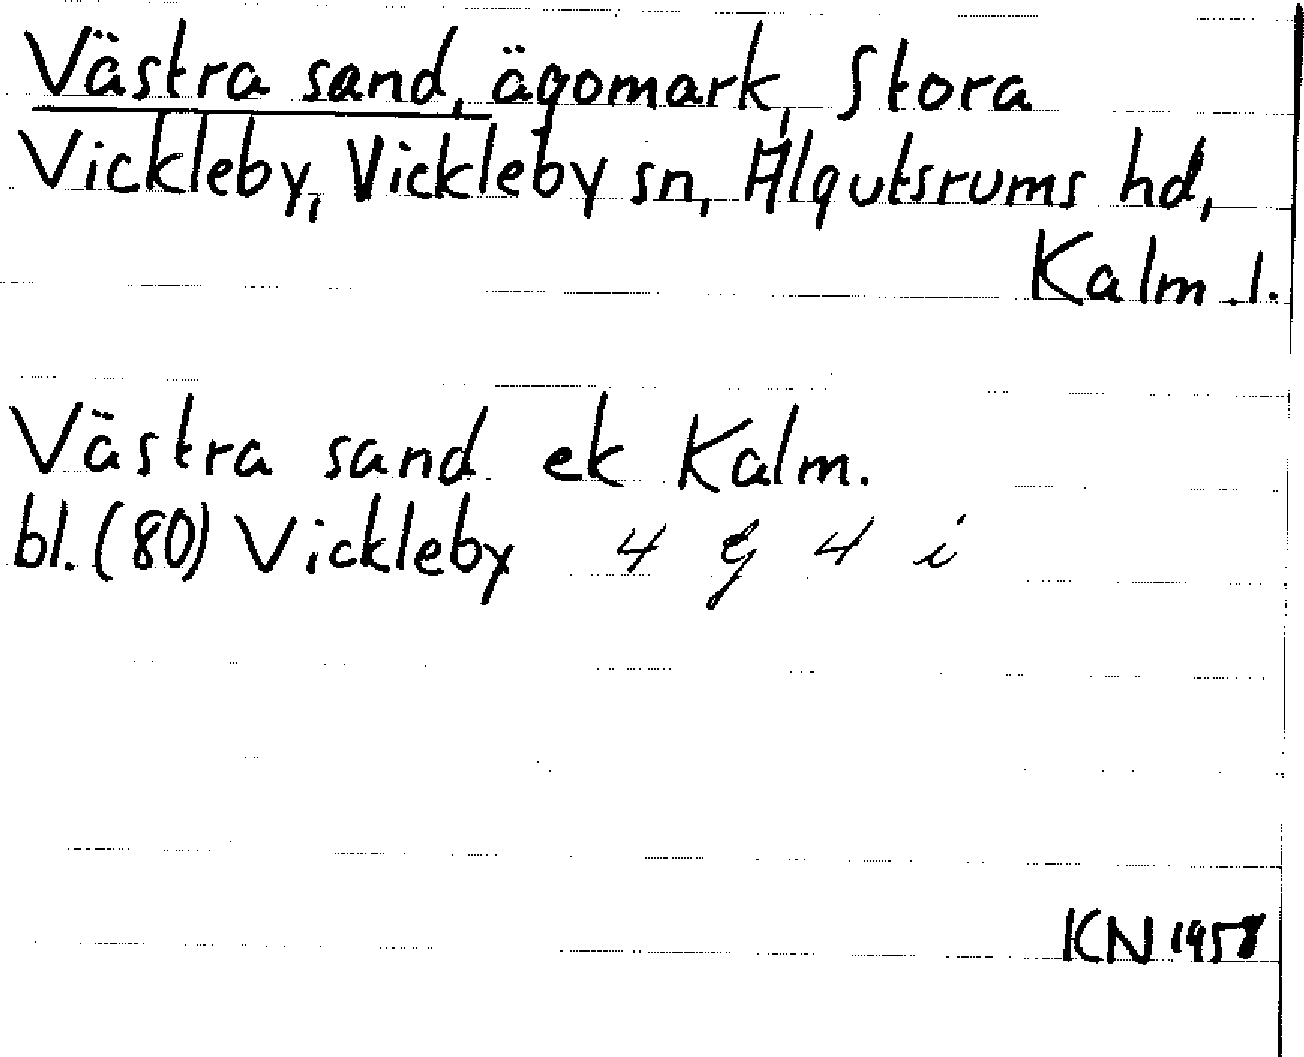 Västra sand, ägomark, Stora
Vickleby, Vickleby sn, Algutsrums hd,
Kalm. l.
Västra sand ek Kalm.
bl. (80) Vickleby 4 g 4 i
KN 1958